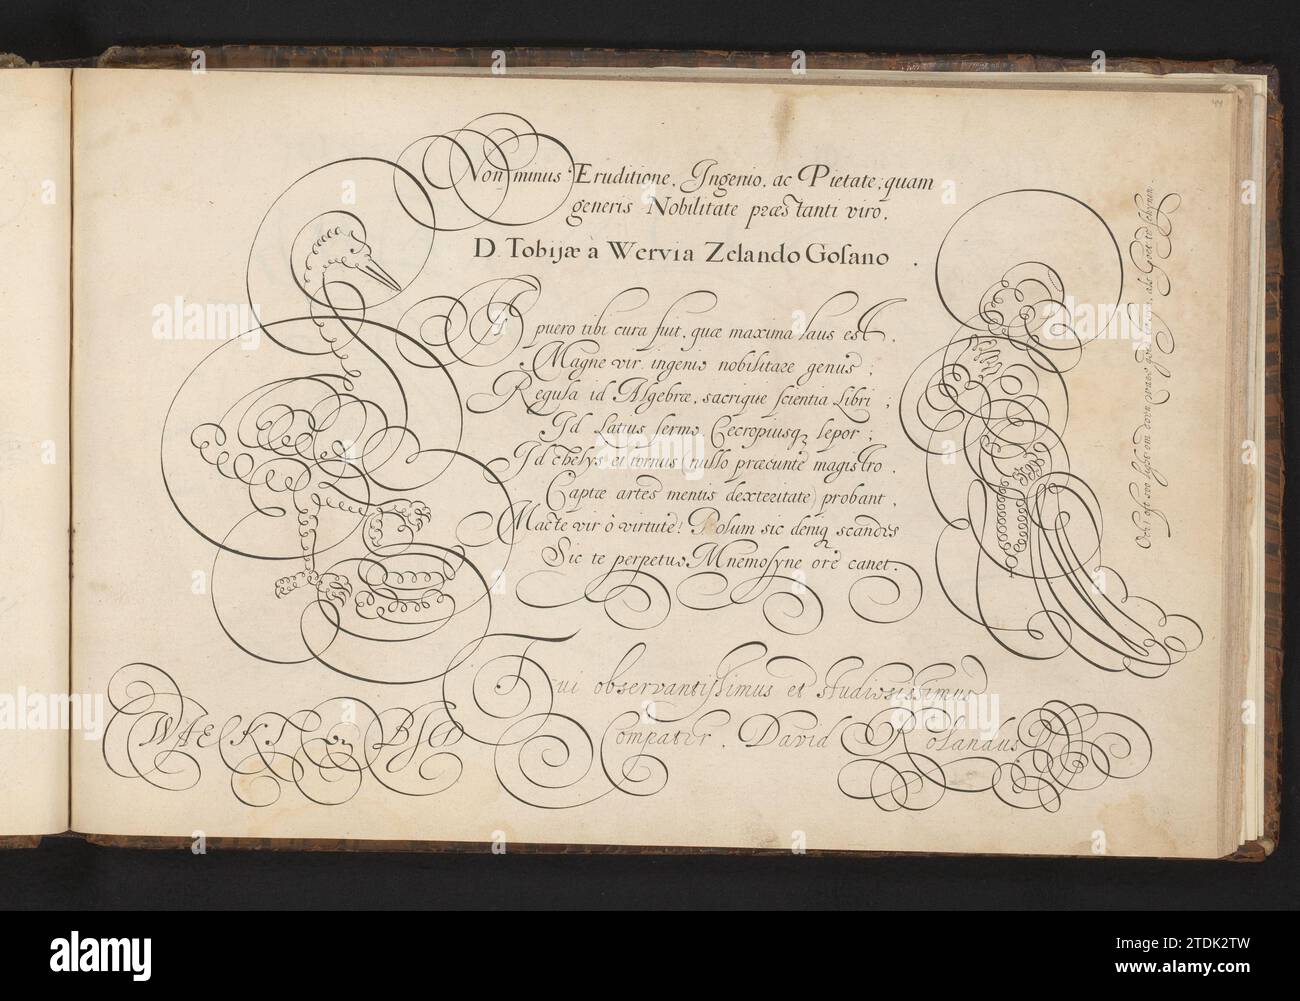 Non minus Eruditione, Ingenio, ac Pietate, quam
generis Nobilitate præstanti viro.
D. Tobijæ à Wervia Zelando Gosano.
A puero tibi cura fuit, quæ maxima laus est,
Magne vir, ingenio nobilitare genus;
Regula id Algebræ, sacrique scientia Libri;
Id Latius sermo, Cecropiusq lepor;
Id chelys et tornus (nullo præeunte magistro
Captæ artes mentis dexteritate) probant.
Macte vir ô virtute! Polum sic deniq scandes
Sic te perpetuo Mnemosyne ore canet.
Tui observantissimus et studiosissimus
Compater. David Rolandus
44
alamy
Image ID: 2TDK2TW
www.alamy.com